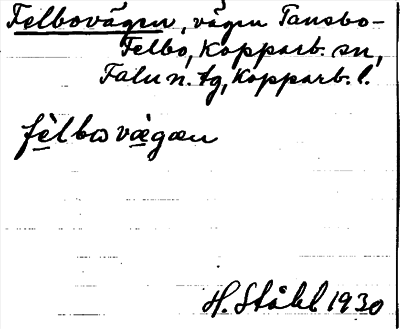 Felbovägen, vägen Tansbo-
Felbo, Kopparb. sn,
Falu n. tg, Kopparb. l.
fèlbo vä̀gæn
H. Ståhl 1930